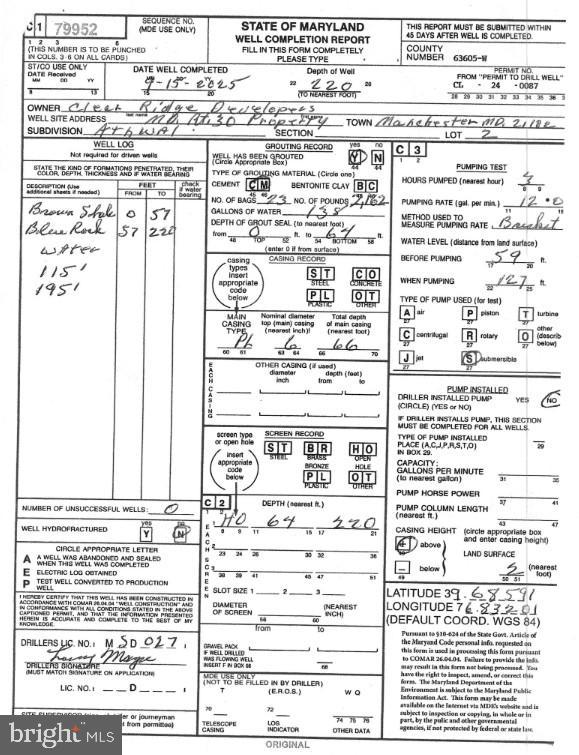 C 1 79952
SEQUENCE NO.
(MDE USE ONLY)
(THIS NUMBER IS TO BE PUNCHED
IN COLS. 3-6 ON ALL CARDS)
STATE OF MARYLAND
WELL COMPLETION REPORT
FILL IN THIS FORM COMPLETELY
PLEASE TYPE
THIS REPORT MUST BE SUBMITTED WITHIN
45 DAYS AFTER WELL IS COMPLETED.
COUNTY
NUMBER 63605-W
ST/CO USE ONLY
DATE Received
MM DD YY
8 13
DATE WELL COMPLETED
15 20
Depth of Well
22 220 26
(TO NEAREST FOOT)
PERMIT NO.
FROM "PERMIT TO DRILL WELL"
CL - 24 - 0087
28 29 30 31 32 33 34 35 36
OWNER Clear Ridge Developers
WELL SITE ADDRESS MD Rt 30 Property TOWN Manchester MD. 21102
SUBDIVISION Athwal SECTION LOT 2
WELL LOG
Not required for driven wells
STATE THE KIND OF FORMATIONS PENETRATED, THEIR
COLOR, DEPTH, THICKNESS AND IF WATER BEARING
DESCRIPTION (Use
additional sheets if needed)
FEET
FROM TO
check
if water
bearing
Brown Shale 0 57
Blue Rock 57 220
Water
115'
195'
NUMBER OF UNSUCCESSFUL WELLS: 0
WELL HYDROFRACTURED
yes no
Y N
CIRCLE APPROPRIATE LETTER
A A WELL WAS ABANDONED AND SEALED
WHEN THIS WELL WAS COMPLETED
E ELECTRIC LOG OBTAINED
P TEST WELL CONVERTED TO PRODUCTION
WELL
I HEREBY CERTIFY THAT THIS WELL HAS BEEN CONSTRUCTED IN
ACCORDANCE WITH COMAR 26.04.04 "WELL CONSTRUCTION" AND
IN CONFORMANCE WITH ALL CONDITIONS STATED IN THE ABOVE
CAPTIONED PERMIT, AND THAT THE INFORMATION PRESENTED
HEREIN IS ACCURATE AND COMPLETE TO THE BEST OF MY
KNOWLEDGE.
DRILLERS LIC. NO. M SD 027
DRILLERS SIGNATURE
(MUST MATCH SIGNATURE ON APPLICATION)
LIC. NO. D
GROUTING RECORD
yes no
WELL HAS BEEN GROUTED
(Circle Appropriate Box)
Y N
44 44
TYPE OF GROUTING MATERIAL (Circle one)
CEMENT CM BENTONITE CLAY BC
NO. OF BAGS 23 NO. OF POUNDS 2,162
GALLONS OF WATER 138
DEPTH OF GROUT SEAL (to nearest foot)
from 0 ft. to 64 ft.
48 TOP 52 54 BOTTOM 58
(enter 0 if from surface)
casing
types
insert
appropriate
code
below
CASING RECORD
ST STEEL
CO CONCRETE
PL PLASTIC
OT OTHER
MAIN
CASING
TYPE
Nominal diameter
top (main) casing
(nearest inch)!
Total depth
of main casing
(nearest foot)
PL 6 66
60 61 63 64 66 70
EACH CASING
OTHER CASING (if used)
diameter
inch
depth (feet)
from to
screen type
or open hole
insert
appropriate
code
below
SCREEN RECORD
ST STEEL
BR BRASS
BRONZE
HO OPEN
HOLE
PL PLASTIC
OT OTHER
C 2
DEPTH (nearest ft.)
HO 64 220
8 9 11 15 17 21
EACH SCREEN
23 24 26 30 32 36
38 39 41 45 47 51
SLOT SIZE 1 2 3
DIAMETER
OF SCREEN
(NEAREST
INCH)
56 60
from to
GRAVEL PACK
IF WELL DRILLED
WAS FLOWING WELL
INSERT F IN BOX 68
68
MDE USE ONLY
(NOT TO BE FILLED IN BY DRILLER)
T (E.R.O.S.) W Q
70 72 74 75 76
TELESCOPE
CASING
LOG
INDICATOR
OTHER DATA
C 3
PUMPING TEST
HOURS PUMPED (nearest hour) 3
8 9
PUMPING RATE (gal. per min.) 12.0
11 15
METHOD USED TO
MEASURE PUMPING RATE Bucket
WATER LEVEL (distance from land surface)
BEFORE PUMPING 59 ft.
17 20
WHEN PUMPING 127 ft.
22 25
TYPE OF PUMP USED (for test)
A air P piston T turbine
C centrifugal R rotary O other
(describe
below)
J jet S submersible
PUMP INSTALLED
DRILLER INSTALLED PUMP YES NO
(CIRCLE) (YES or NO)
IF DRILLER INSTALLS PUMP, THIS SECTION
MUST BE COMPLETED FOR ALL WELLS.
TYPE OF PUMP INSTALLED
PLACE (A,C,J,P,R,S,T,O)
IN BOX 29.
29
CAPACITY:
GALLONS PER MINUTE
(to nearest gallon)
31 35
PUMP HORSE POWER
37 41
PUMP COLUMN LENGTH
(nearest ft.)
43 47
CASING HEIGHT (circle appropriate box
and enter casing height)
+ above
LAND SURFACE
- below
49
2 (nearest
foot)
50 51
LATITUDE 39.68591
LONGITUDE 76.83201
(DEFAULT COORD. WGS 84)
Pursuant to §10-624 of the State Govt. Article of
the Maryland Code personal info. requested on
this form is used in processing this form pursuant
to COMAR 26.04.04. Failure to provide the info.
may result in this form not being processed. You
have the right to inspect, amend, or correct this
form. The Maryland Department of the
Environment is subject to the Maryland Public
Information Act. This form may be made
available on the Internet via MDE's website and is
subject to inspection or copying, in whole or in
part, by the public and other governmental
agencies, if not protected by federal or state law.
bright MLS
ORIGINAL